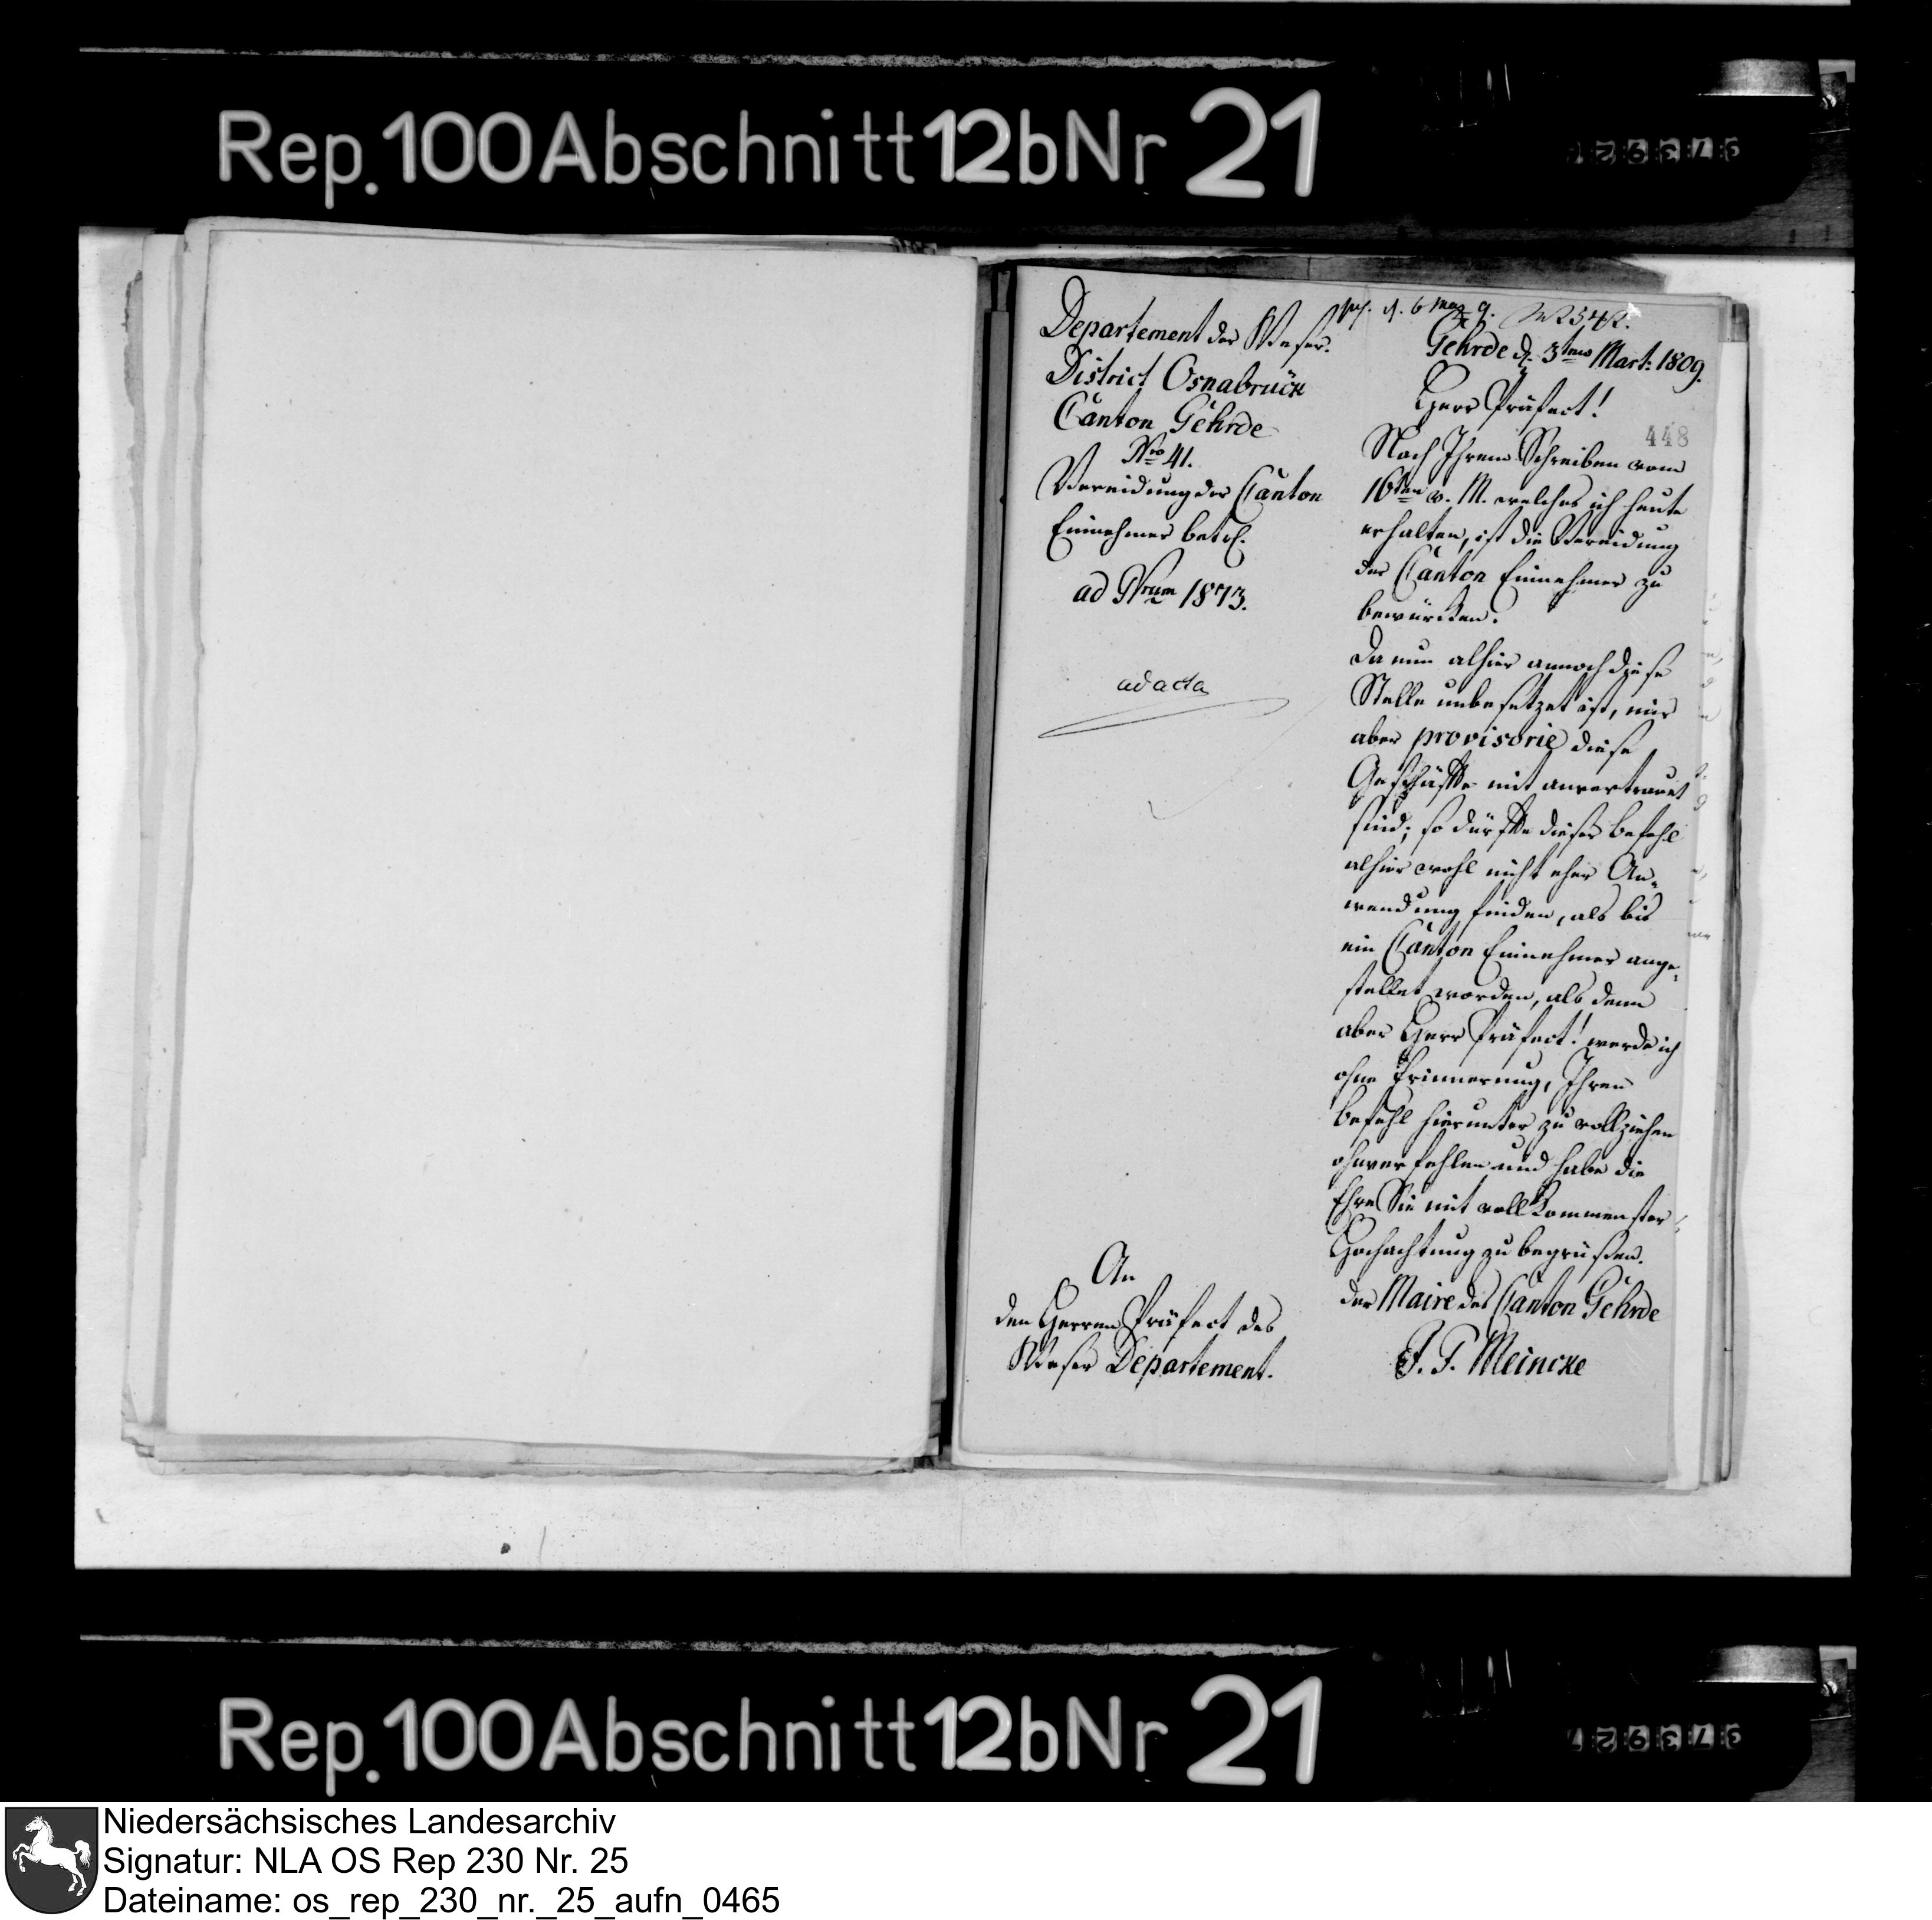 Rep. 100 Abschnitt 12b Nr 21
Departement der Weser.
District Osnabrück
Canton Gehrde
Nro 41.
Vereidung der Canton
Einnehmer betr.
ad Nrum 1873.
ad acta
An
den Herren Präfect des
Weser Departement.
d. 6 Mrz 9.
Gehrde d. 3ten Mart: 1809.
Herr Präfect!
448
Nach Ihrem Schreiben vom
16ten v. M. welches ich heute
erhalten, ist die Vereidung
der Canton Einnehmer zu
bewürken.
Da nun alhier annoch diese
Stelle unbesetzet ist, mir
aber provisorie diese
Geschäffte mit anvertrauet
sind; so dürffte dieser Befehl
alhier wohl nicht eher An-
wendung finden, als bis
ein Canton Einnehmer ange-
stellet worden, als denn
aber Herr Präfect! werde ich
ohne Erinnerung, Ihren
Befehl hierunter zu vollziehen
ohnverfehlen und habe die
Ehre Sie mit vollkommenster
Hochachtung zu begrüßen.
der Maire des Canton Gehrde
Meincke
Rep. 100 Abschnitt 12b Nr 21
Niedersächsisches Landesarchiv
Signatur: NLA OS Rep 230 Nr. 25
Dateiname: os_rep_230_nr._25_aufn_0465